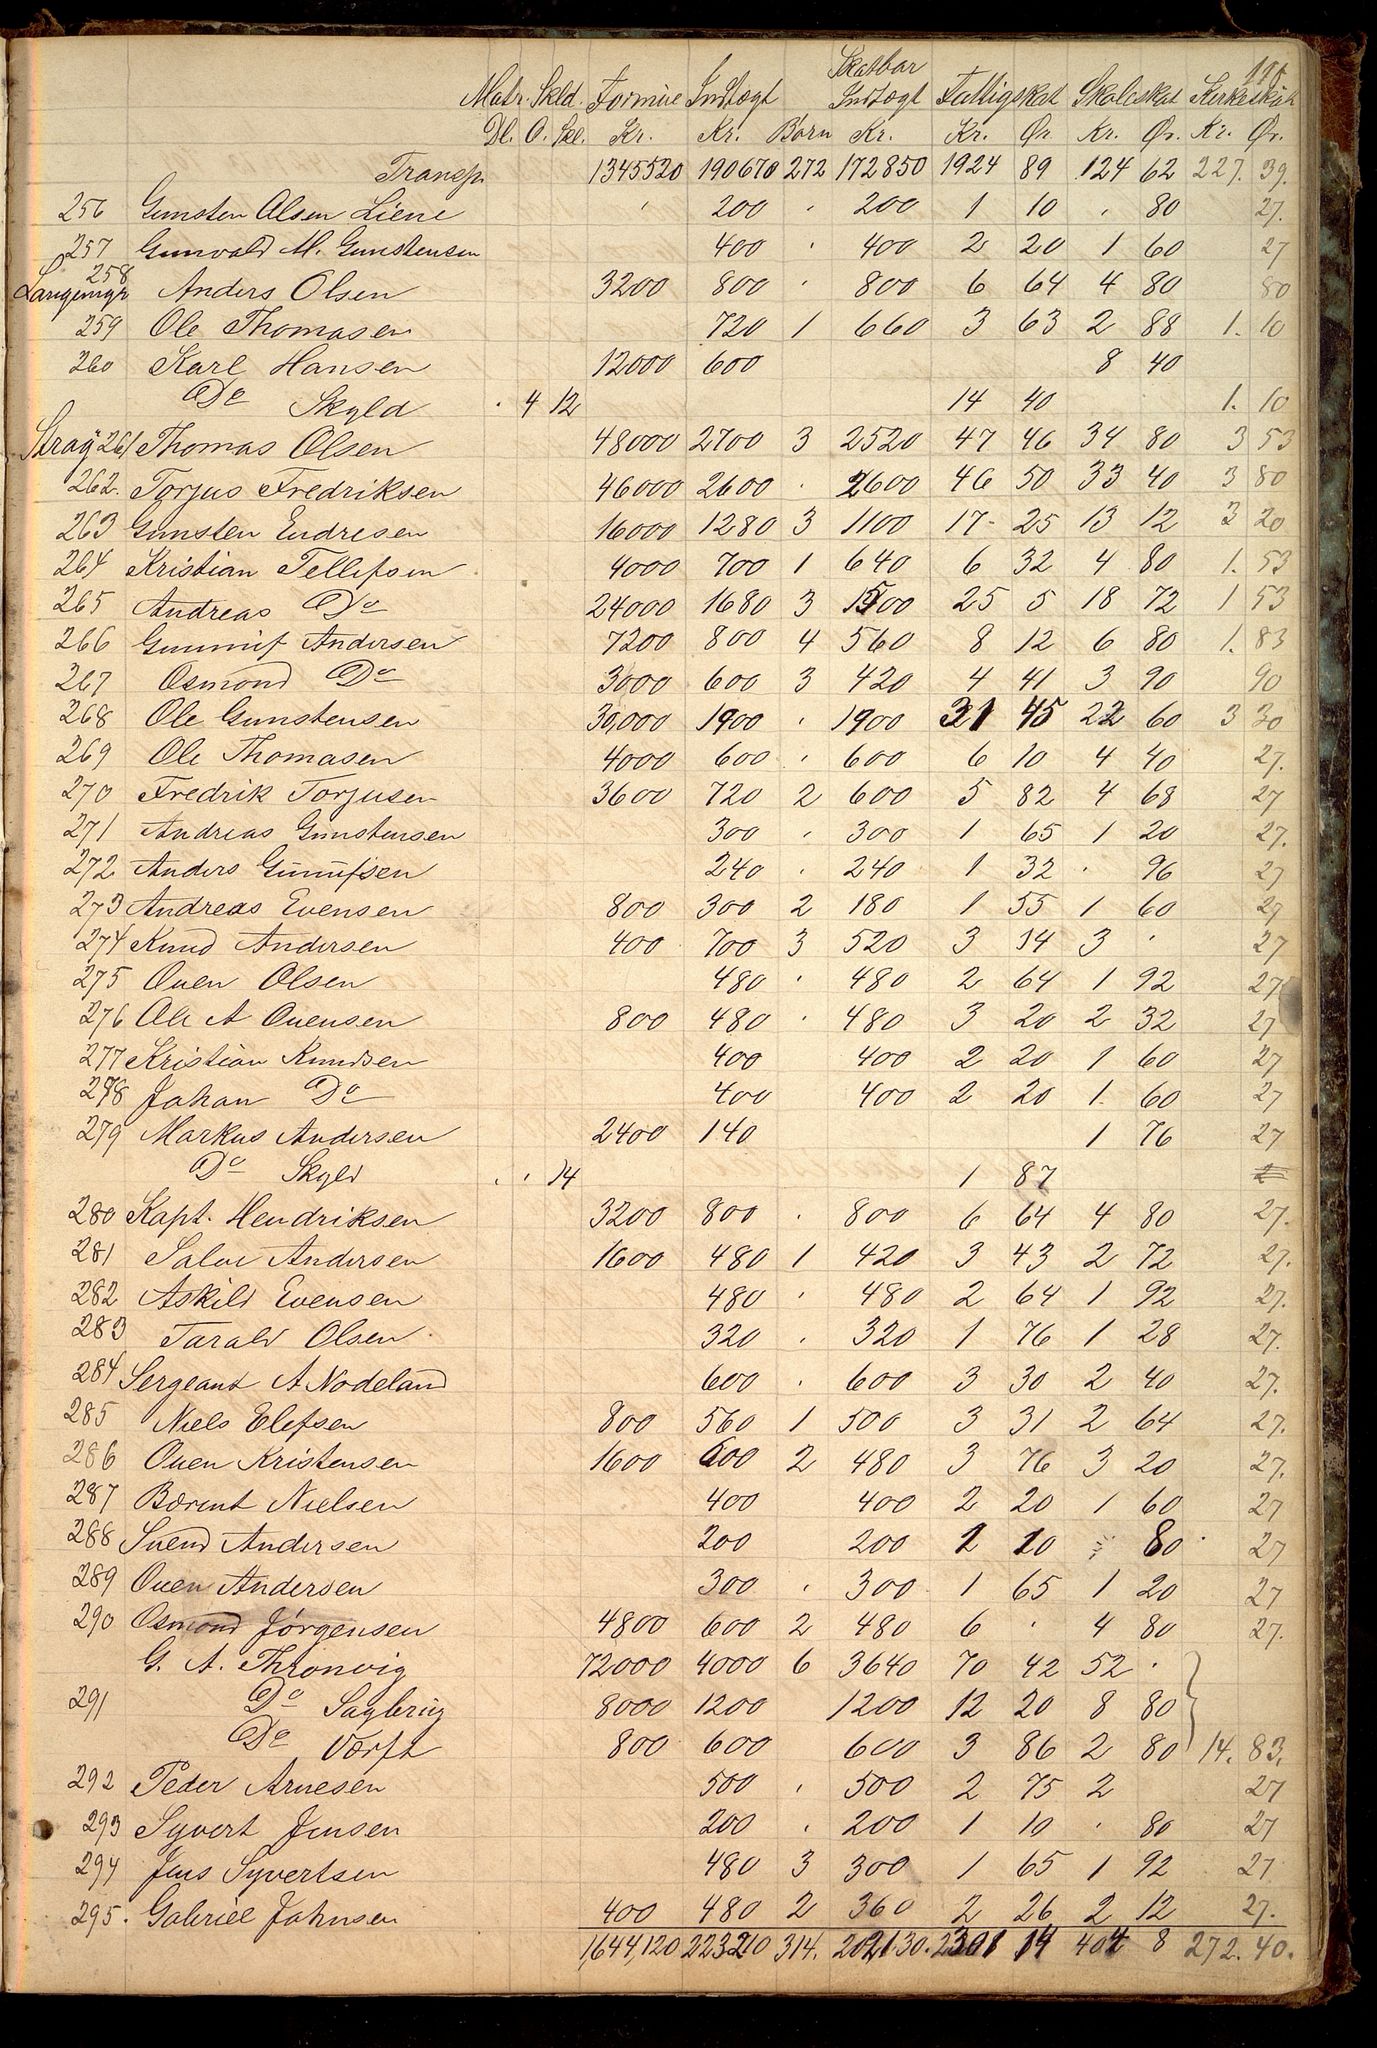 118.
Matr. Skld. Formue Indtægt Skatbar Indtægt Fattigskat Skoleskat Kirkeskat
Dl. O. Skl. Kr. Kr. Børn Kr. Kr. Ør. Kr. Ør. Kr. Ør.
Transp. 1345520 190670 272 172850 1924 89 124 62 227. 39.
256 Gunsten Olsen Liene 200 . 200 1 10 . 80 27.
257 Gunvald M. Gunstensen 400 . 400 2 20 1 60 27
258 Anders Olsen 3200 800 . 800 6 64 4 80 80
259 Ole Thomasen 720 1 660 3 63 2 88 1. 10
260 Karl Hansen 12000 600 8 40
Do Skyld . 4 12 14 40 1. 10
Stray 261 Thomas Olsen 48000 2700 3 2520 47 46 34 80 3 53
262. Torjus Fredriksen 46000 2600 . 2600 46 50 33 40 3 80
263 Gunsten Endresen 16000 1280 3 1100 17 25 13 12 3 20
264 Kristian Tellefsen 4000 700 1 640 6 32 4 80 1. 53
265 Andreas Do 24000 1680 3 1500 25 5 18 72 1 53
266 Gunnuf Andersen 7200 800 4 560 8 12 6 80 1. 83
267 Osmond Do 3000 600 3 420 4 41 3 90 90
268 Ole Gunstensen 30,000 1900 . 1900 31 45 22 60 3 30
269 Ole Thomasen 4000 600 . 600 6 10 4 40 27.
270 Fredrik Torjusen 3600 720 2 600 5 82 4 68 27
271 Andreas Gunstensen 300 . 300 1 65 1 20 27.
272 Anders Gunufsen 240 . 240 1 32 . 96 27
273 Andreas Evensen 800 300 2 180 1 55 1 60 27
274 Knud Andersen 400 700 3 520 3 14 3 . 27
275 Ouen Olsen 480 . 480 2 64 1 92 27
276 Ole A Ouensen 800 480 . 480 3 20 2 32 27
277 Kristian Knudsen 400 400 2 20 1 60 27
278 Johan Do 400 400 2 20 1 60 27
279 Markus Andersen 2400 140 1 76 27
Do Skyld . . 14 1 87
280 Kapt. Hendriksen 3200 800 . 800 6 64 4 80 27.
281 Salve Andersen 1600 480 1 420 3 43 2 72 27.
282 Askild Evensen 480 . 480 2 64 1 92 27.
283 Tarald Olsen 320 . 320 1 76 1 28 27.
284 Sergeant A Nodeland 600 . 600 3 30 2 40 27.
285 Niels Elefsen 800 560 1 500 3 31 2 64 27.
286 Ouen Kristensen 1600 600 2 480 3 76 3 20 27.
287 Bærent Nielsen 400 400 2 20 1 60 27
288 Svend Andersen 200 200 1 10 80 27
289 Ouen Andersen 300 . 300 1 65 1 20 27
290 Osmond Jørgensen 4800 600 2 480 6 . 4 80 27.
G. A. Thronvig 72000 4000 6 3640 70 42 52 .
291 Do Sagbrug 8000 1200 1200 12 20 8 80
Do Værft 800 600 600 3 86 2 80 14. 83.
292 Peder Arnesen 500 . 500 2 75 2 27
293 Syvert Jensen 200 . 200 1 10 . 80 27
294 Jens Syvertsen 480 3 300 1 65 1 92 27
295. Gabriel Johnsen 400 480 2 360 2 26 2 12 27.
1,644,120 223210 314. 202130. 2301 14 404 8 272. 40.